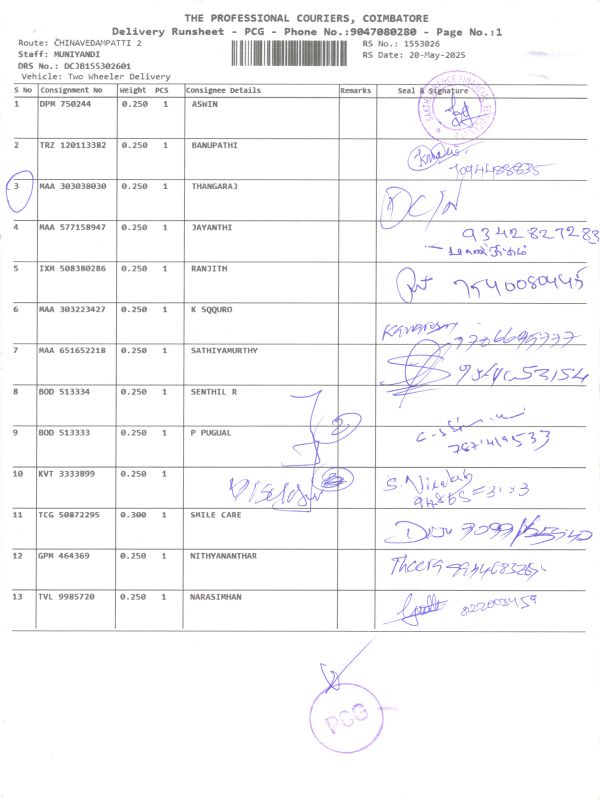 THE PROFESSIONAL COURIERS, COIMBATORE
Delivery Runsheet - PCG - Phone No.:9047080280 - Page No.:1
Route: CHINAVEDAMPATTI 2 RS No.: 1553026
Staff: MUNIYANDI RS Date: 20-May-2025
DRS No.: DCJB155302601
Vehicle: Two Wheeler Delivery
S No Consignment No Weight PCS Consignee Details Remarks Seal & Signature
1 DPM 750244 0.250 1 ASWIN
2 TRZ 120113382 0.250 1 BANUPATHI
7094488835
3 MAA 303038030 0.250 1 THANGARAJ
DC/N
4 MAA 577158947 0.250 1 JAYANTHI 9342827283
5 IXM 508380286 0.250 1 RANJITH
7540080445
6 MAA 303223427 0.250 1 K SQQURO
7 MAA 651652218 0.250 1 SATHIYAMURTHY
8 BOD 513334 0.250 1 SENTHIL R
2
9 BOD 513333 0.250 1 P PUGUAL
10 KVT 3333899 0.250 1
11 TCG 50872295 0.300 1 SMILE CARE
12 GPM 464369 0.250 1 NITHYANANTHAR
13 TVL 9985720 0.250 1 NARASIMHAN
PCG